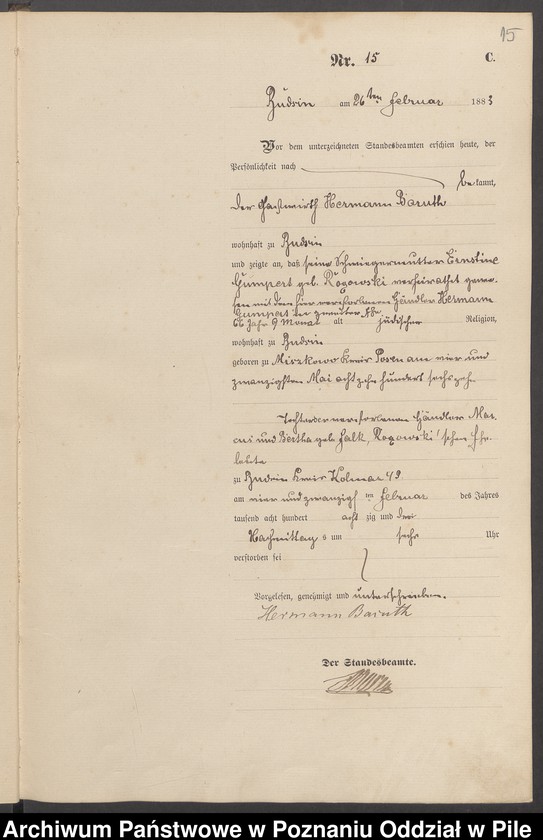 15
Nr. 15 C.
Budsin am 26ten Februar 1883
Vor dem unterzeichneten Standesbeamten erschien heute, der
Persönlichkeit nach
bekannt,
der Gastwirth Hermann Baruth
wohnhaft zu Budsin
und zeigte an, daß seine Schwiegermutter Ernstine
Gumpert geb. Rogowski verheirathet gewe-
sen mit dem hier verstorbenen Händler Hermann
Gumpert in zweiter Ehe
66 Jahr 9 Monat alt jüdischer Religion,
wohnhaft zu Budsin
geboren zu Miszkowo Kreis Posen am vier und
zwanzigsten Mai acht zehn hundert sechszehn
Tochter der verstorbenen Händler Mar-
cus und Bertha geb. Falk, Rogowski'schen Ehe-
leute
zu Budsin Kreis Kolmar 49
am vier und zwanzigsten Februar des Jahres
tausend acht hundert achtzig und drei
Nachmittags um sechs Uhr
verstorben sei
Vorgelesen, genehmigt und unterschrieben.
Hermann Baruth
Der Standesbeamte.
Archiwum Państwowe w Poznaniu Oddział w Pile